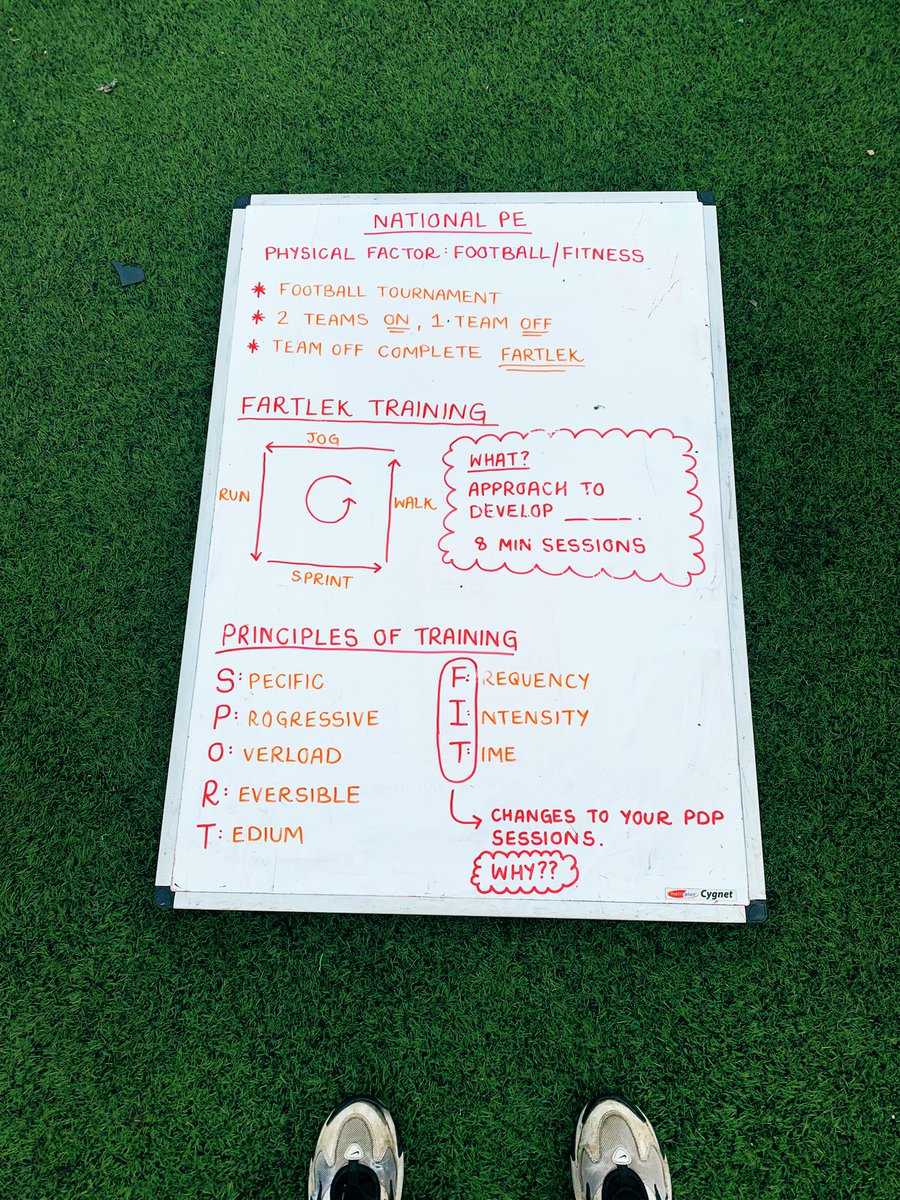 NATIONAL PE
PHYSICAL FACTOR: FOOTBALL/FITNESS
* FOOTBALL TOURNAMENT
* 2 TEAMS ON, 1 TEAM OFF
* TEAM OFF COMPLETE FARTLEK
FARTLEK TRAINING
JOG
RUN
WALK
SPRINT
WHAT?
APPROACH TO
DEVELOP ______.
8 MIN SESSIONS
PRINCIPLES OF TRAINING
S: PECIFIC
P: ROGRESSIVE
O: VERLOAD
R: EVERSIBLE
T: EDIUM
F: REQUENCY
I: NTENSITY
T: IME
→ CHANGES TO YOUR PDP
SESSIONS.
WHY??
Cygnet